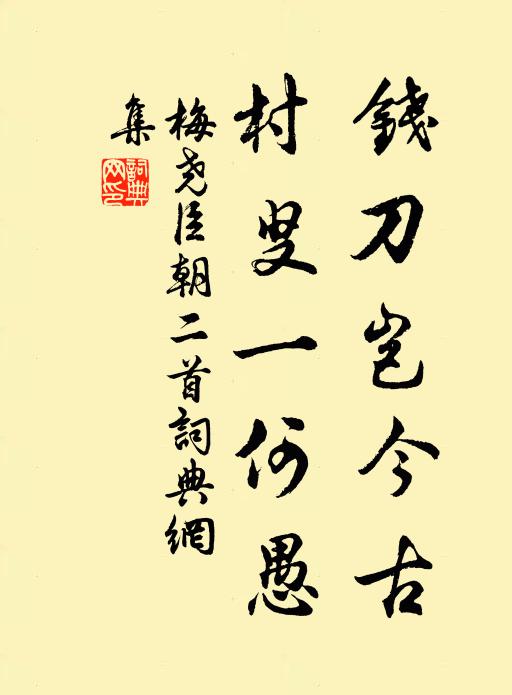 錢刀豈今古
村叟一何愚
梅尧臣朝二首詞典網
集
詞典
网印